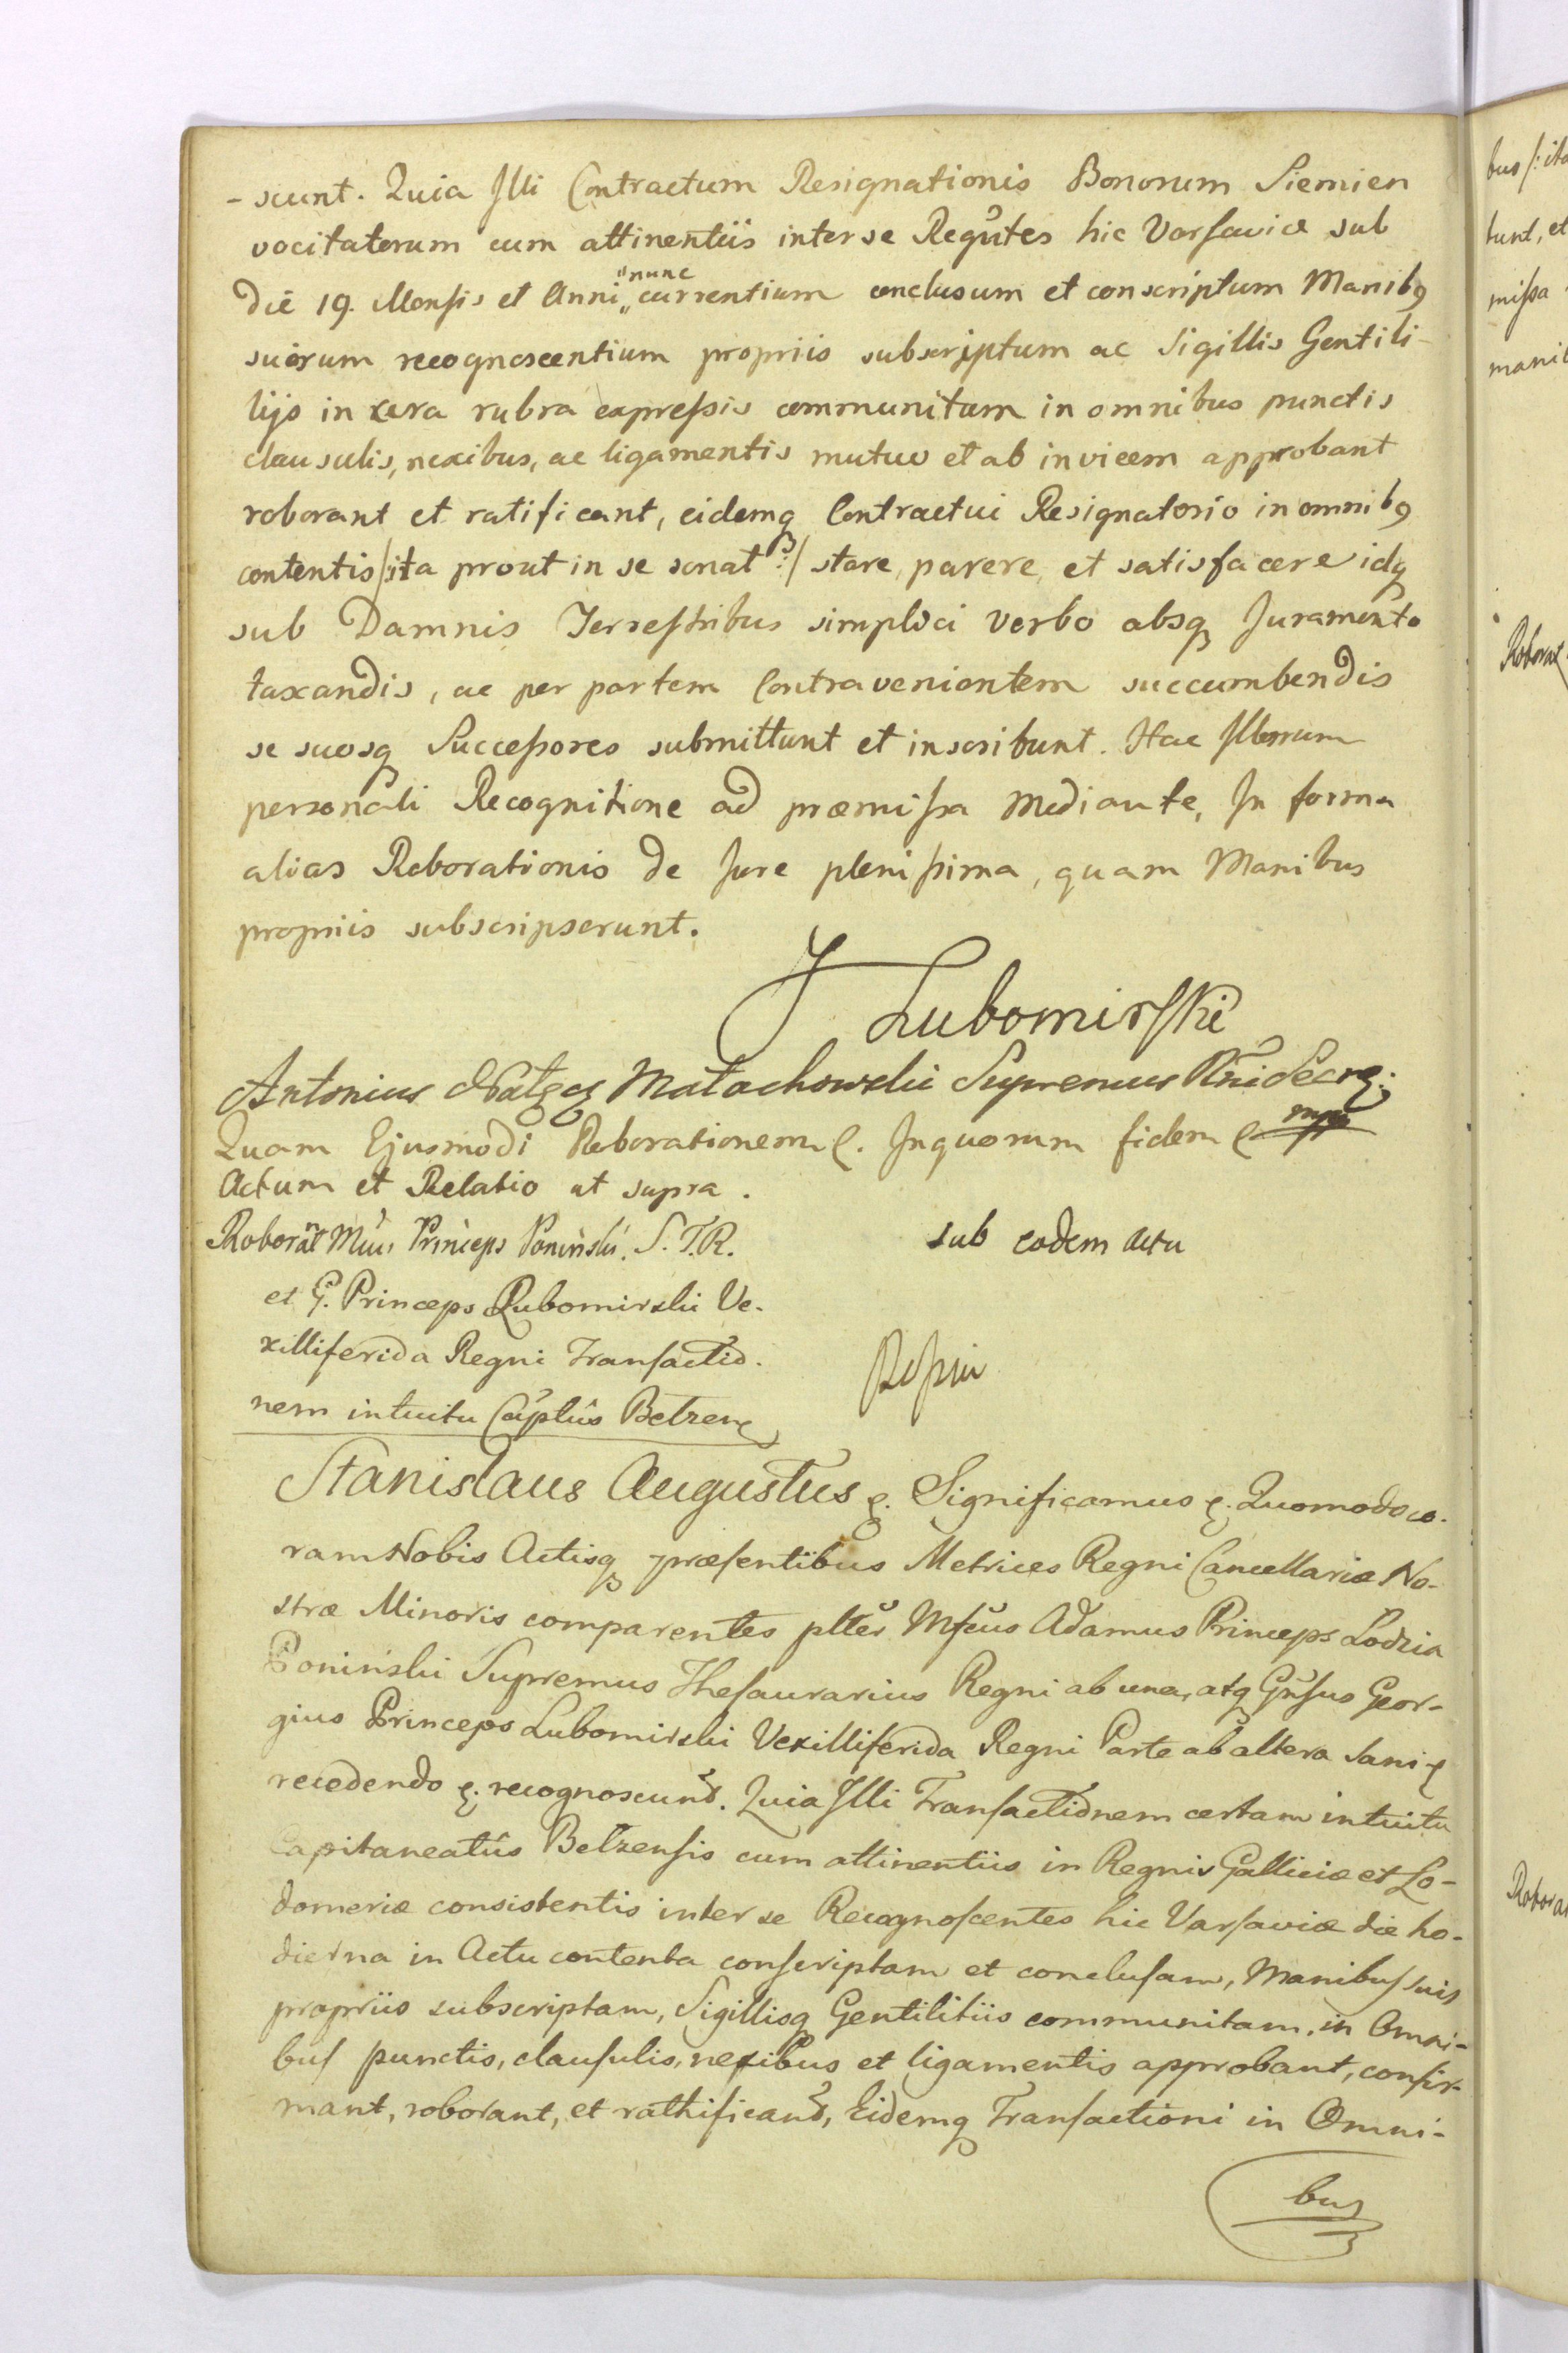 -scunt. Quia Illi Contractum Resignationis Bonorum Siemien
vocitatorum cum attinentiis inter se Regūtes hic Varsaviæ sub
Die 19. Mensis et Anni „nunc„ currentium conclusum et conscriptum Manibꝯ
suorum recognoscentium propriis subscriptum ac Sigillis Gentili-
tijs in cera rubra expressis communitum in omnibus punctis
clausulis, nexibus, ac ligamentis mutuo et ab invicem approbant
roborant et ratificant, eidemq Contractui Resignatorio in omnibꝯ
contentis /:ita prout in se sonat:/ stare, parere, et satisfacere idq
sub Damnis Terrestribus simplici verbo absq Juramento
taxandis, ac per partem Contravenientem succumbendis
se suosq Successores submittunt et inscribunt. Hac Illorum
personali Recognitione ad præmissa Mediante, In forma
alias Roborationis de Jure plenissima, quam Manibus
propriis subscripserunt.
J Lubomirski
Antonius Nałęcz Małachowski Supremus Rñi Secrę.
Quam Ejusmodi Roborationem ę. In quorum fidem ę mpp
Actum et Relatio ut supra.
Roborãt Mūs Princeps Poniński. S. T. R.
et G. Princeps Lubomirski Ve-
xilliferida Regni Transactio-
nem intuitu Cãptûs Betzenę
sub eodem Actu
Stanislaus Augustus ę. Significamus ę. Quomodo co-
ram Nobis Actisq præsentibus Metrices Regni Cancellariæ No-
stræ Minoris comparentes pltēr Mfcus Adamus Princeps Lodzia
Poniński Supremus Thesaurarius Regni ab una, atq Gñsus Geor-
gius Princeps Lubomirski Vexilliferida Regni Parte ab altera Sani ę
recedendo ę. recognoscunt. Quia Illi Transactionem certam intuitu
Capitaneatûs Betzensis cum attinentiis in Regnis Galliciæ et Lo-
domeriæ consistentis inter se Recognoscentes hic Varsaviæ die ho-
dierna in Actu contenta conscriptam et conclusam, Manibus suis
propriis subscriptam, Sigillisq Gentilitiis communitam, in Omni-
bus punctis, clausulis, nexibus et ligamentis approbant, confir-
mant, roborant, et rathificant, Eidemq Transactioni in Omni-
bus